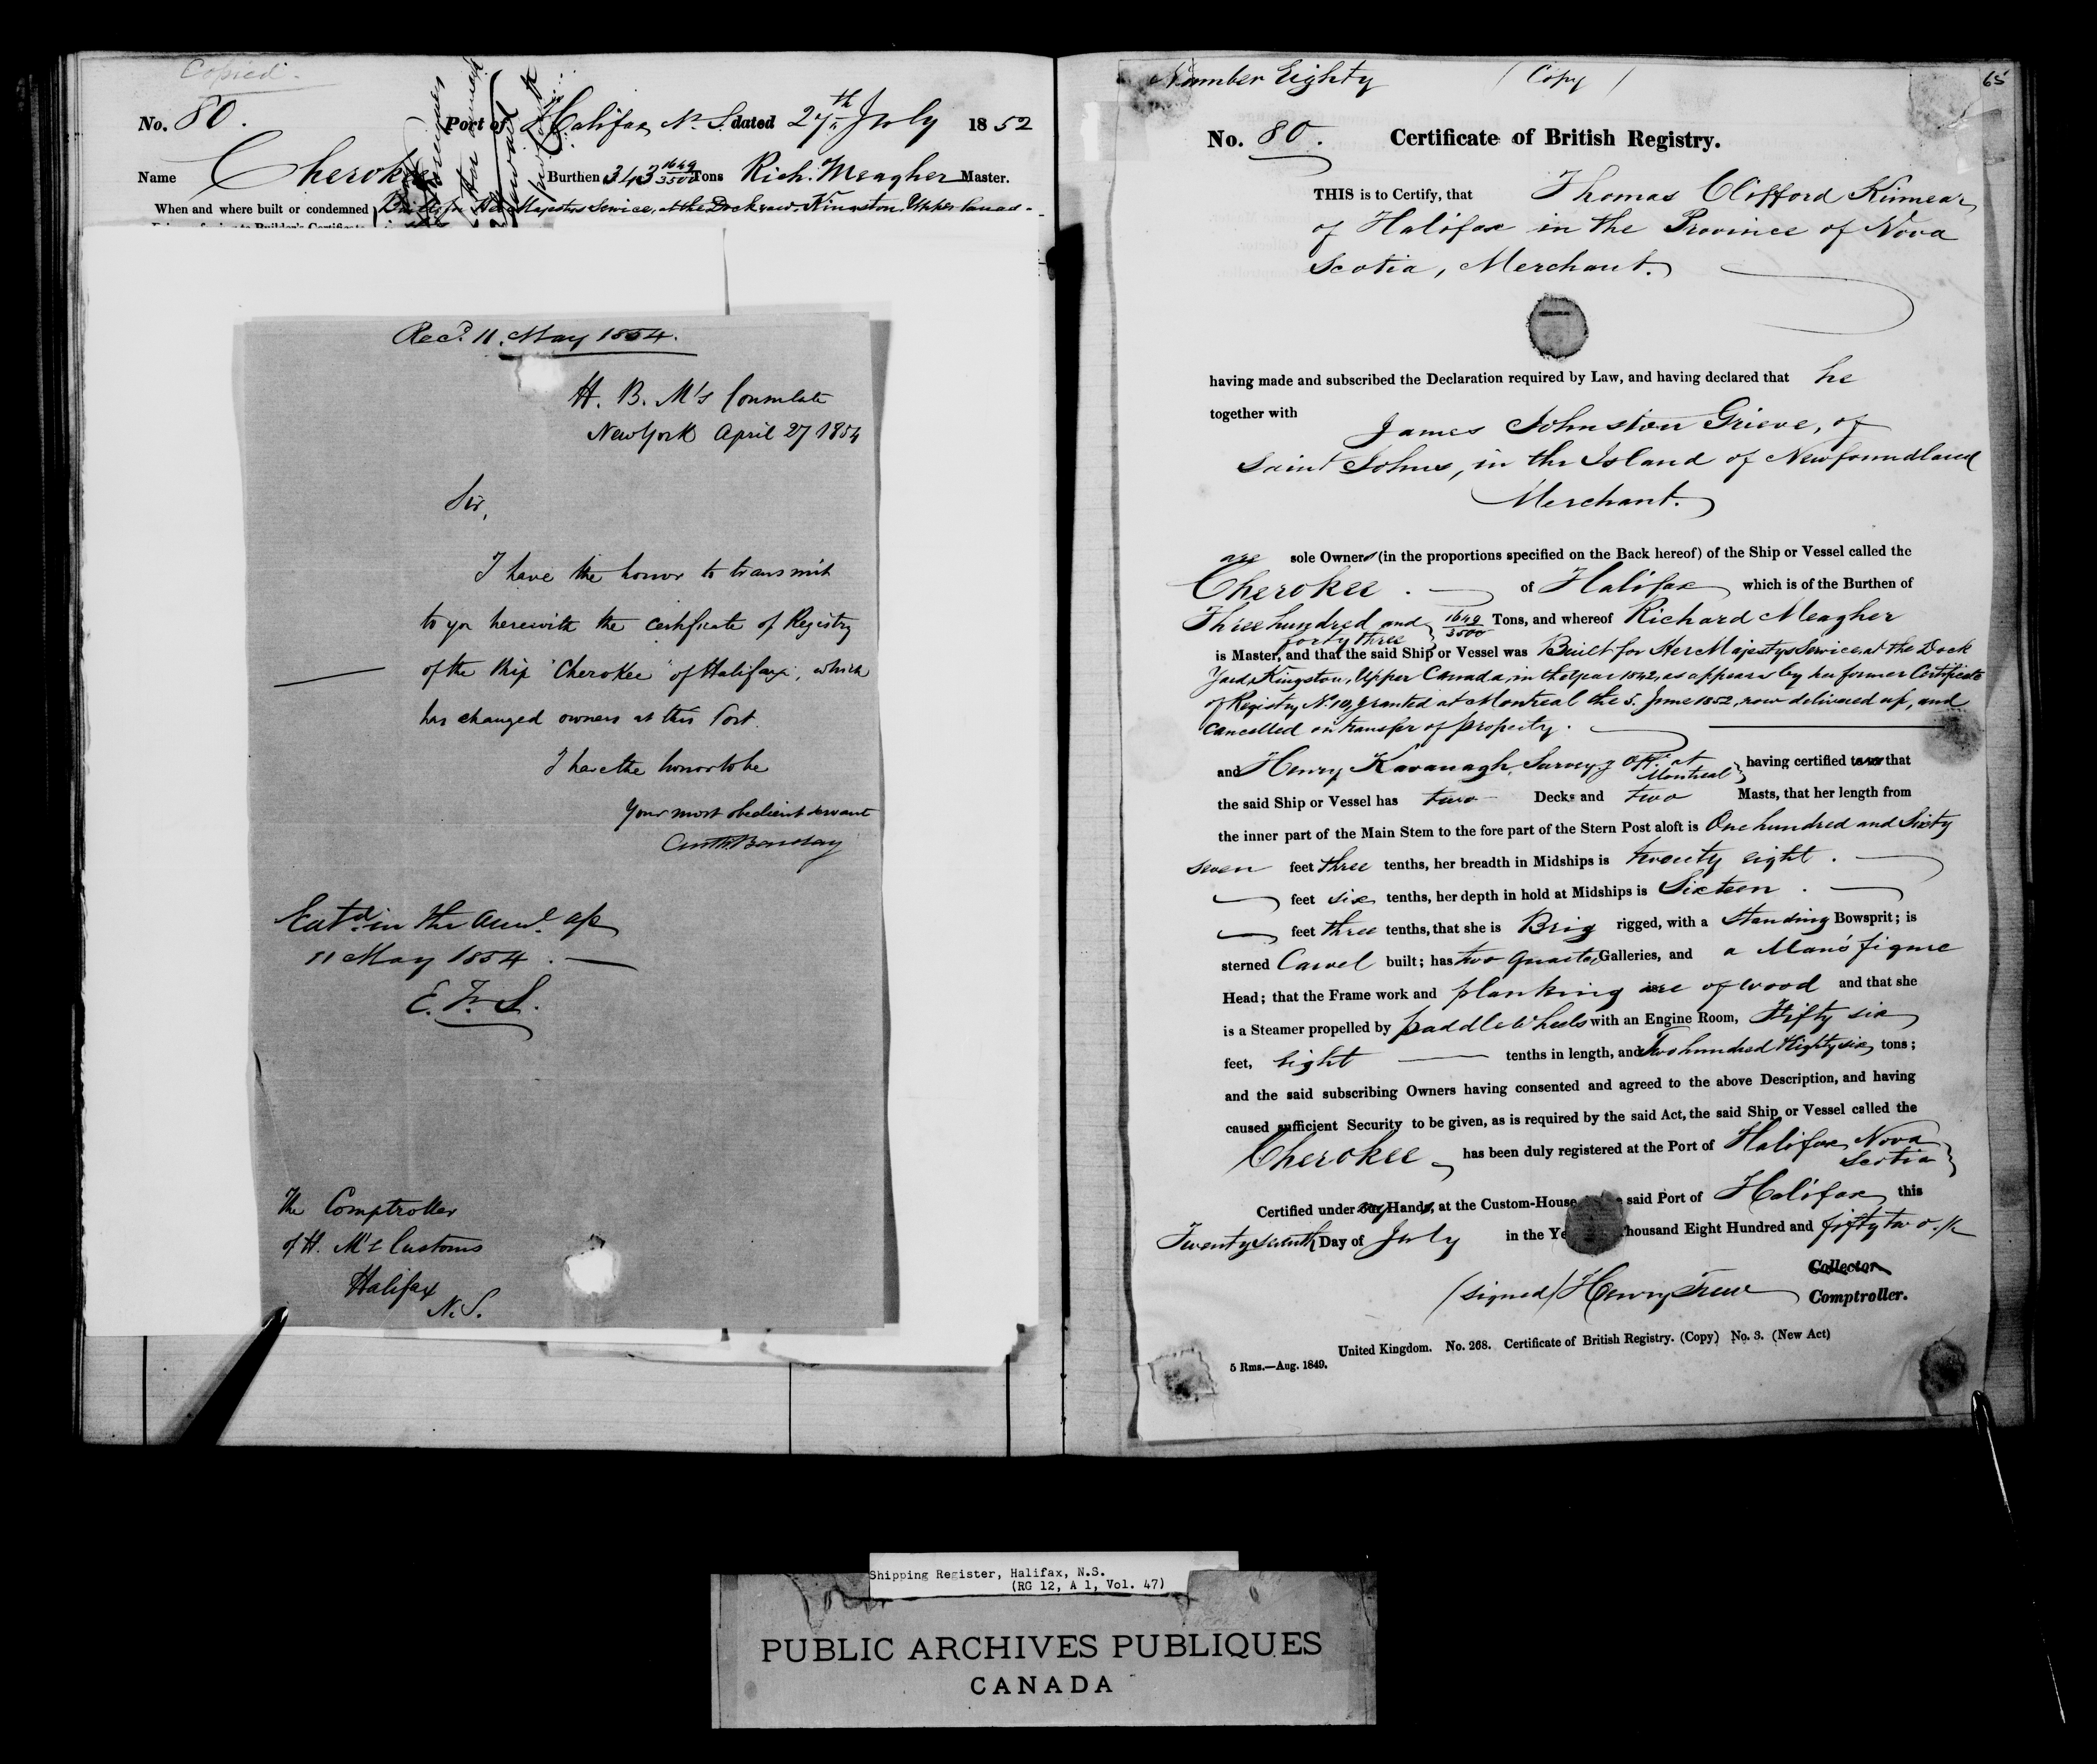 Copied.
No. 80. Port of Halifax N. S. dated 27th July 1852
Name Cherokee Burthen 343 1649/3500 Tons Rich. Meagher Master.
When and where built or condemned Built for Her Majestys Service, at the Dock yard, Kingston, Upper Canad
Recd. 11. May 1854.
H. B. M's Consulate
New York April 27 1854
Sir,
I have the honor to transmit
to you herewith the certificate of Registry
of the Ship "Cherokee" of Halifax, which
has changed owners at this Port.
I have the honor to be
Your most obedient servant
11 May 1854. —
E. F. S.
The Comptroller
of H. M's Customs
Halifax
N. S.
Number Eighty (Copy) 65
No. 80. Certificate of British Registry.
THIS is to Certify, that Thomas Clifford Kinnear
of Halifax in the Province of Nova
Scotia, Merchant.
having made and subscribed the Declaration required by Law, and having declared that he
together with
James Johnston Grieve, of
Saint Johns, in the Island of Newfoundland
Merchant.
are sole Owners (in the proportions specified on the Back hereof) of the Ship or Vessel called the
Cherokee. of Halifax which is of the Burthen of
Three hundred and forty three 1649/3500 Tons, and whereof Richard Meagher
is Master, and that the said Ship or Vessel was Built for Her Majestys Service at the Dock
Yard, Kingston, Upper Canada, in the year 1842, as appears by her former Certificate
of Registry No. 10, granted at Montreal the 5. June 1852, now delivered up, and
Cancelled on transfer of property.
and Henry Kavanagh, Surveyg Offr. at Montreal having certified to us that
the said Ship or Vessel has two Decks and two Masts, that her length from
the inner part of the Main Stem to the fore part of the Stern Post aloft is One hundred and Sixty
seven feet three tenths, her breadth in Midships is twenty eight.
feet six tenths, her depth in hold at Midships is Sixteen.
feet three tenths, that she is Brig rigged, with a Standing Bowsprit; is
sterned Carvel built; has two Quarter Galleries, and a Man's figure
Head; that the Frame work and planking are of wood and that she
is a Steamer propelled by paddle Wheels with an Engine Room, Fifty six
feet, eight tenths in length, and Two hundred & Eighty six tons;
and the said subscribing Owners having consented and agreed to the above Description, and having
caused sufficient Security to be given, as is required by the said Act, the said Ship or Vessel called the
Cherokee has been duly registered at the Port of Halifax, Nova Scotia
Certified under my Hand, at the Custom-House said Port of Halifax this
Twenty seventh Day of July in the Ye housand Eight Hundred and fifty two.
Collector
(signed) Henry Trew Comptroller.
United Kingdom. No. 268. Certificate of British Registry. (Copy) No. 3. (New Act)
5 Rms.—Aug. 1849.
Shipping Register, Halifax, N.S.
(RG 12, A 1, Vol. 47)
PUBLIC ARCHIVES PUBLIQUES
CANADA